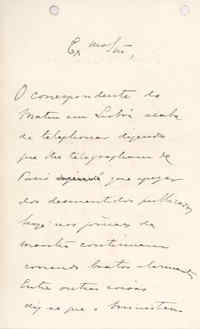 Ex.mo Snr.,
O correspondente do
Matin em Lisboa acaba
de telephonar dizendo
que lhe telegrapham de
Paris que apezar
dos desmentidos publicados
hoje nos jornaes da
manhã continuam
correndo boatos
Entre outras coisas
diz-se que o ministerio